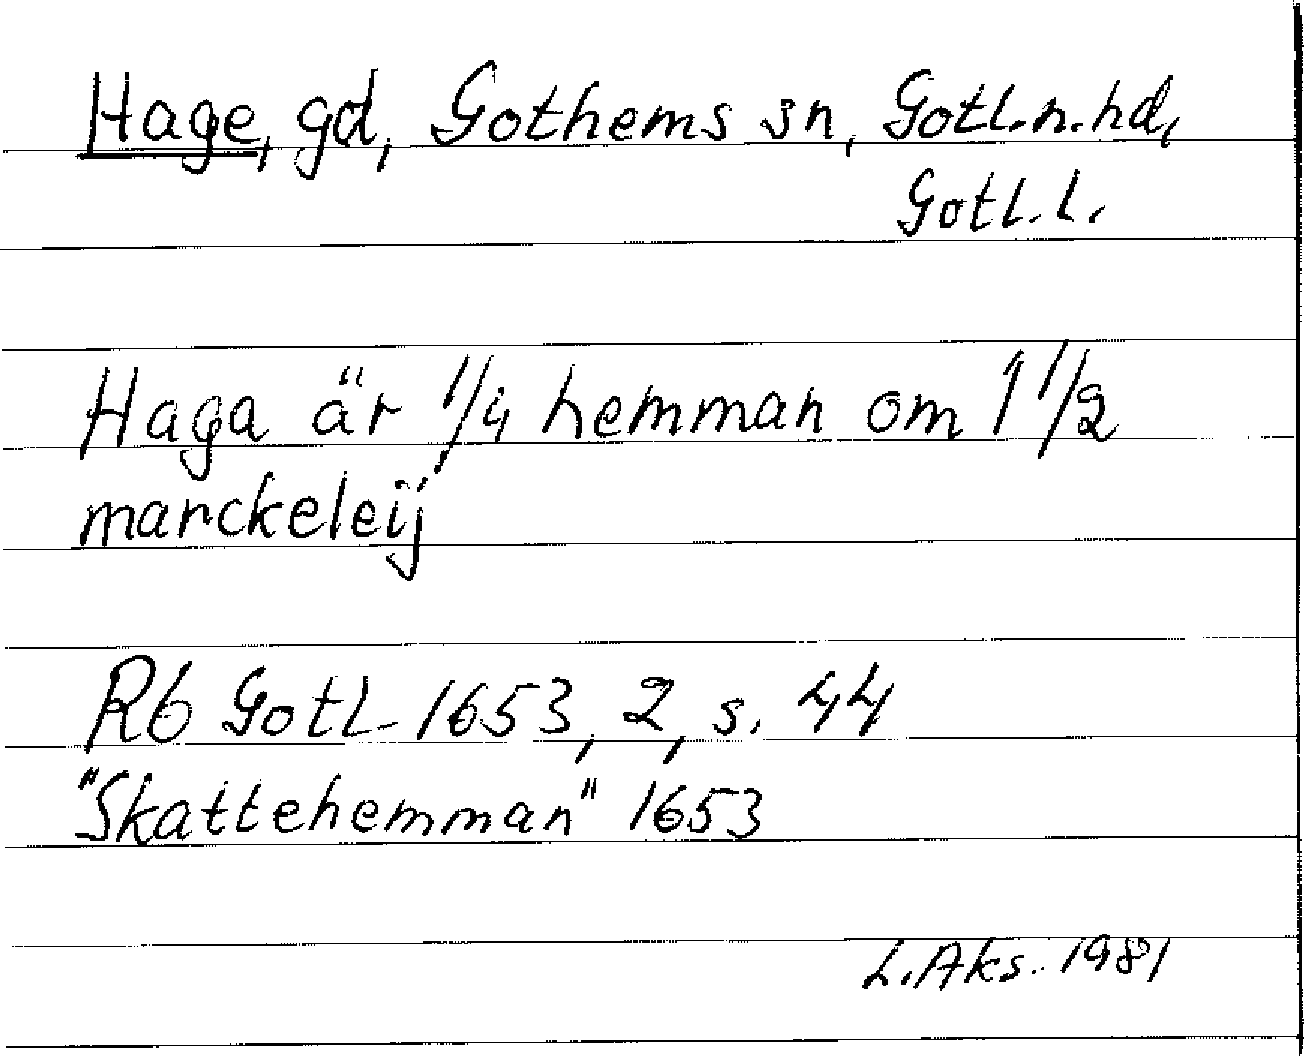 Hage, gd, Gothems sn, Gotl.n.hd,
Gotl.l.
Haga är 1/4 hemman om 1 1/2
marckeleij
Rb Gotl 1653, 2, s. 44
"Skattehemman" 1653
L. Aks. 1981